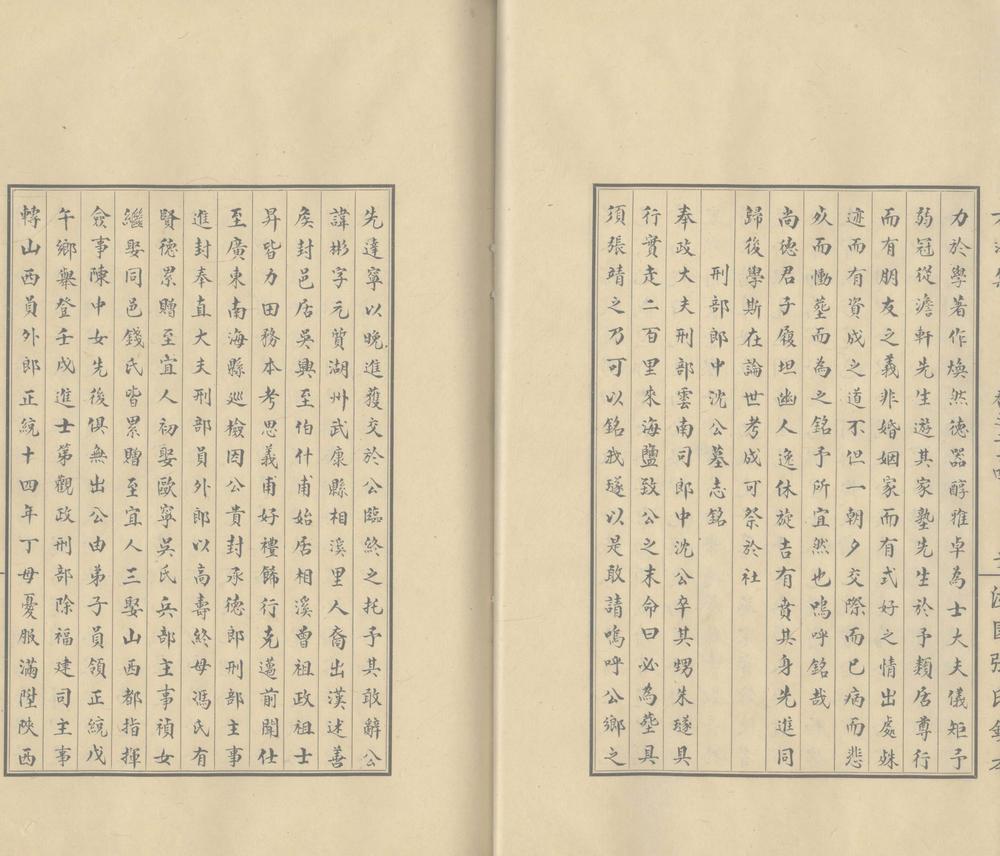 力於學著作煥然德器醇雅卓為士大夫儀矩予
弱冠從澹軒先生遊其家塾先生於予類居尊行
而有朋友之義非婚姻家而有式好之情出處殊
迹而有資成之道不但一朝夕交際而已病而悲
歿而慟塟而為之銘予所宜然也嗚呼銘哉
尚德君子履坦幽人逸休旋吉有賁其身先進同
歸後學斯在論世考成可祭於社
刑部郎中沈公墓志銘
奉政大夫刑部雲南司郎中沈公卒其甥朱璲具
行實走二百里來海鹽致公之末命曰必為塟具
須張靖之乃可以銘我璲以是敢請嗚呼公鄉之
先達寧以晚進獲交於公臨終之托予其敢辭公
諱彬字元質湖州武康縣相溪里人裔出漢述善
矦封邑居吳興至伯什甫始居相溪曾祖政祖士
昇皆力田務本考思義甫好禮飾行克邁前聞仕
至廣東南海縣廵檢因公貴封承德郎刑部主事
進封奉直大夫刑部員外郎以高壽終母馮氏有
賢德累贈至宜人初娶歐寧吳氏兵部主事禎女
繼娶同邑錢氏皆累贈至宜人三娶山西都指揮
僉事陳中女先後俱無出公由弟子員領正統戊
午鄉舉登壬戌進士第觀政刑部除福建司主事
轉山西員外郎正統十四年丁母憂服滿陞陝西